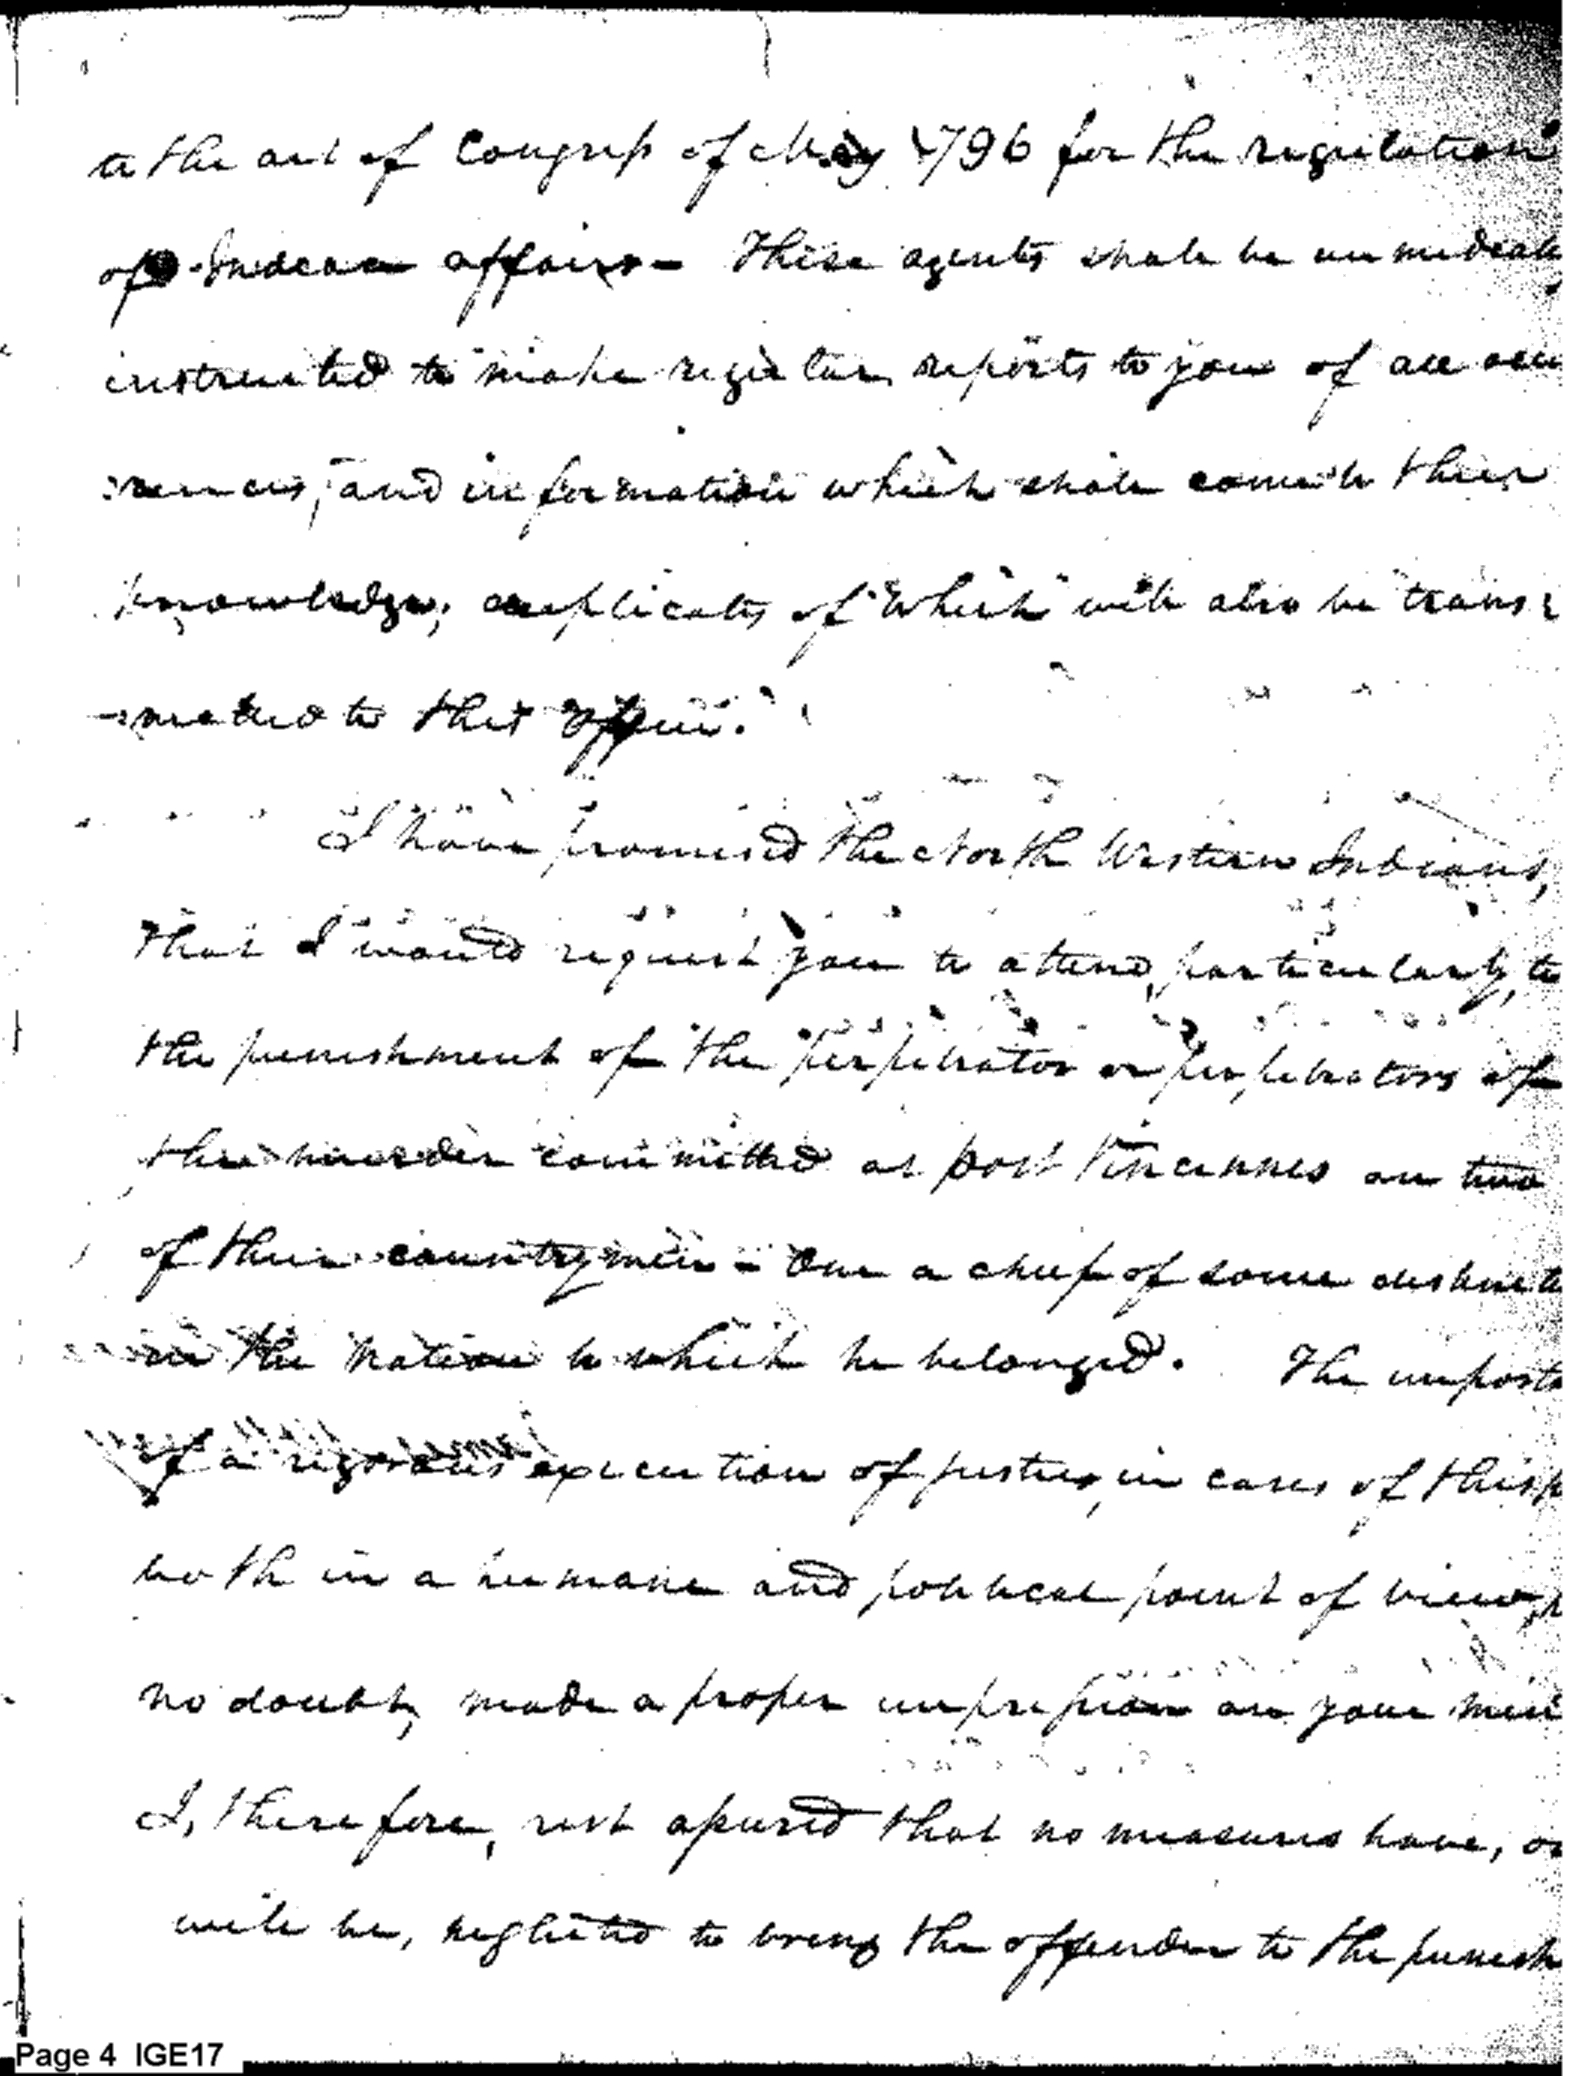 to the act of Congress of May 1796 for the regulation
of Indian affairs – These agents shall be immediate
instructed to make regular reports to you of all occu
rences, and information which shall come to their
knowledge, duplicates of which will also be trans
mitted to this office.
I have promised the North Western Indians,
that I would request you to attend, particularly, to
the punishment of the perpetrator or perpetrators of
the murder committed at post Vincennes on two
of their countrymen – One a chief of some distinct
in the nation to which he belonged. The importa
of a rigorous execution of justice, in cases of this
both in a humane and political point of view,
no doubt, made a proper impression on your min
I, therefore, rest assured that no measures have, or
will be, neglected to bring the offender to the punish
Page 4 IGE17